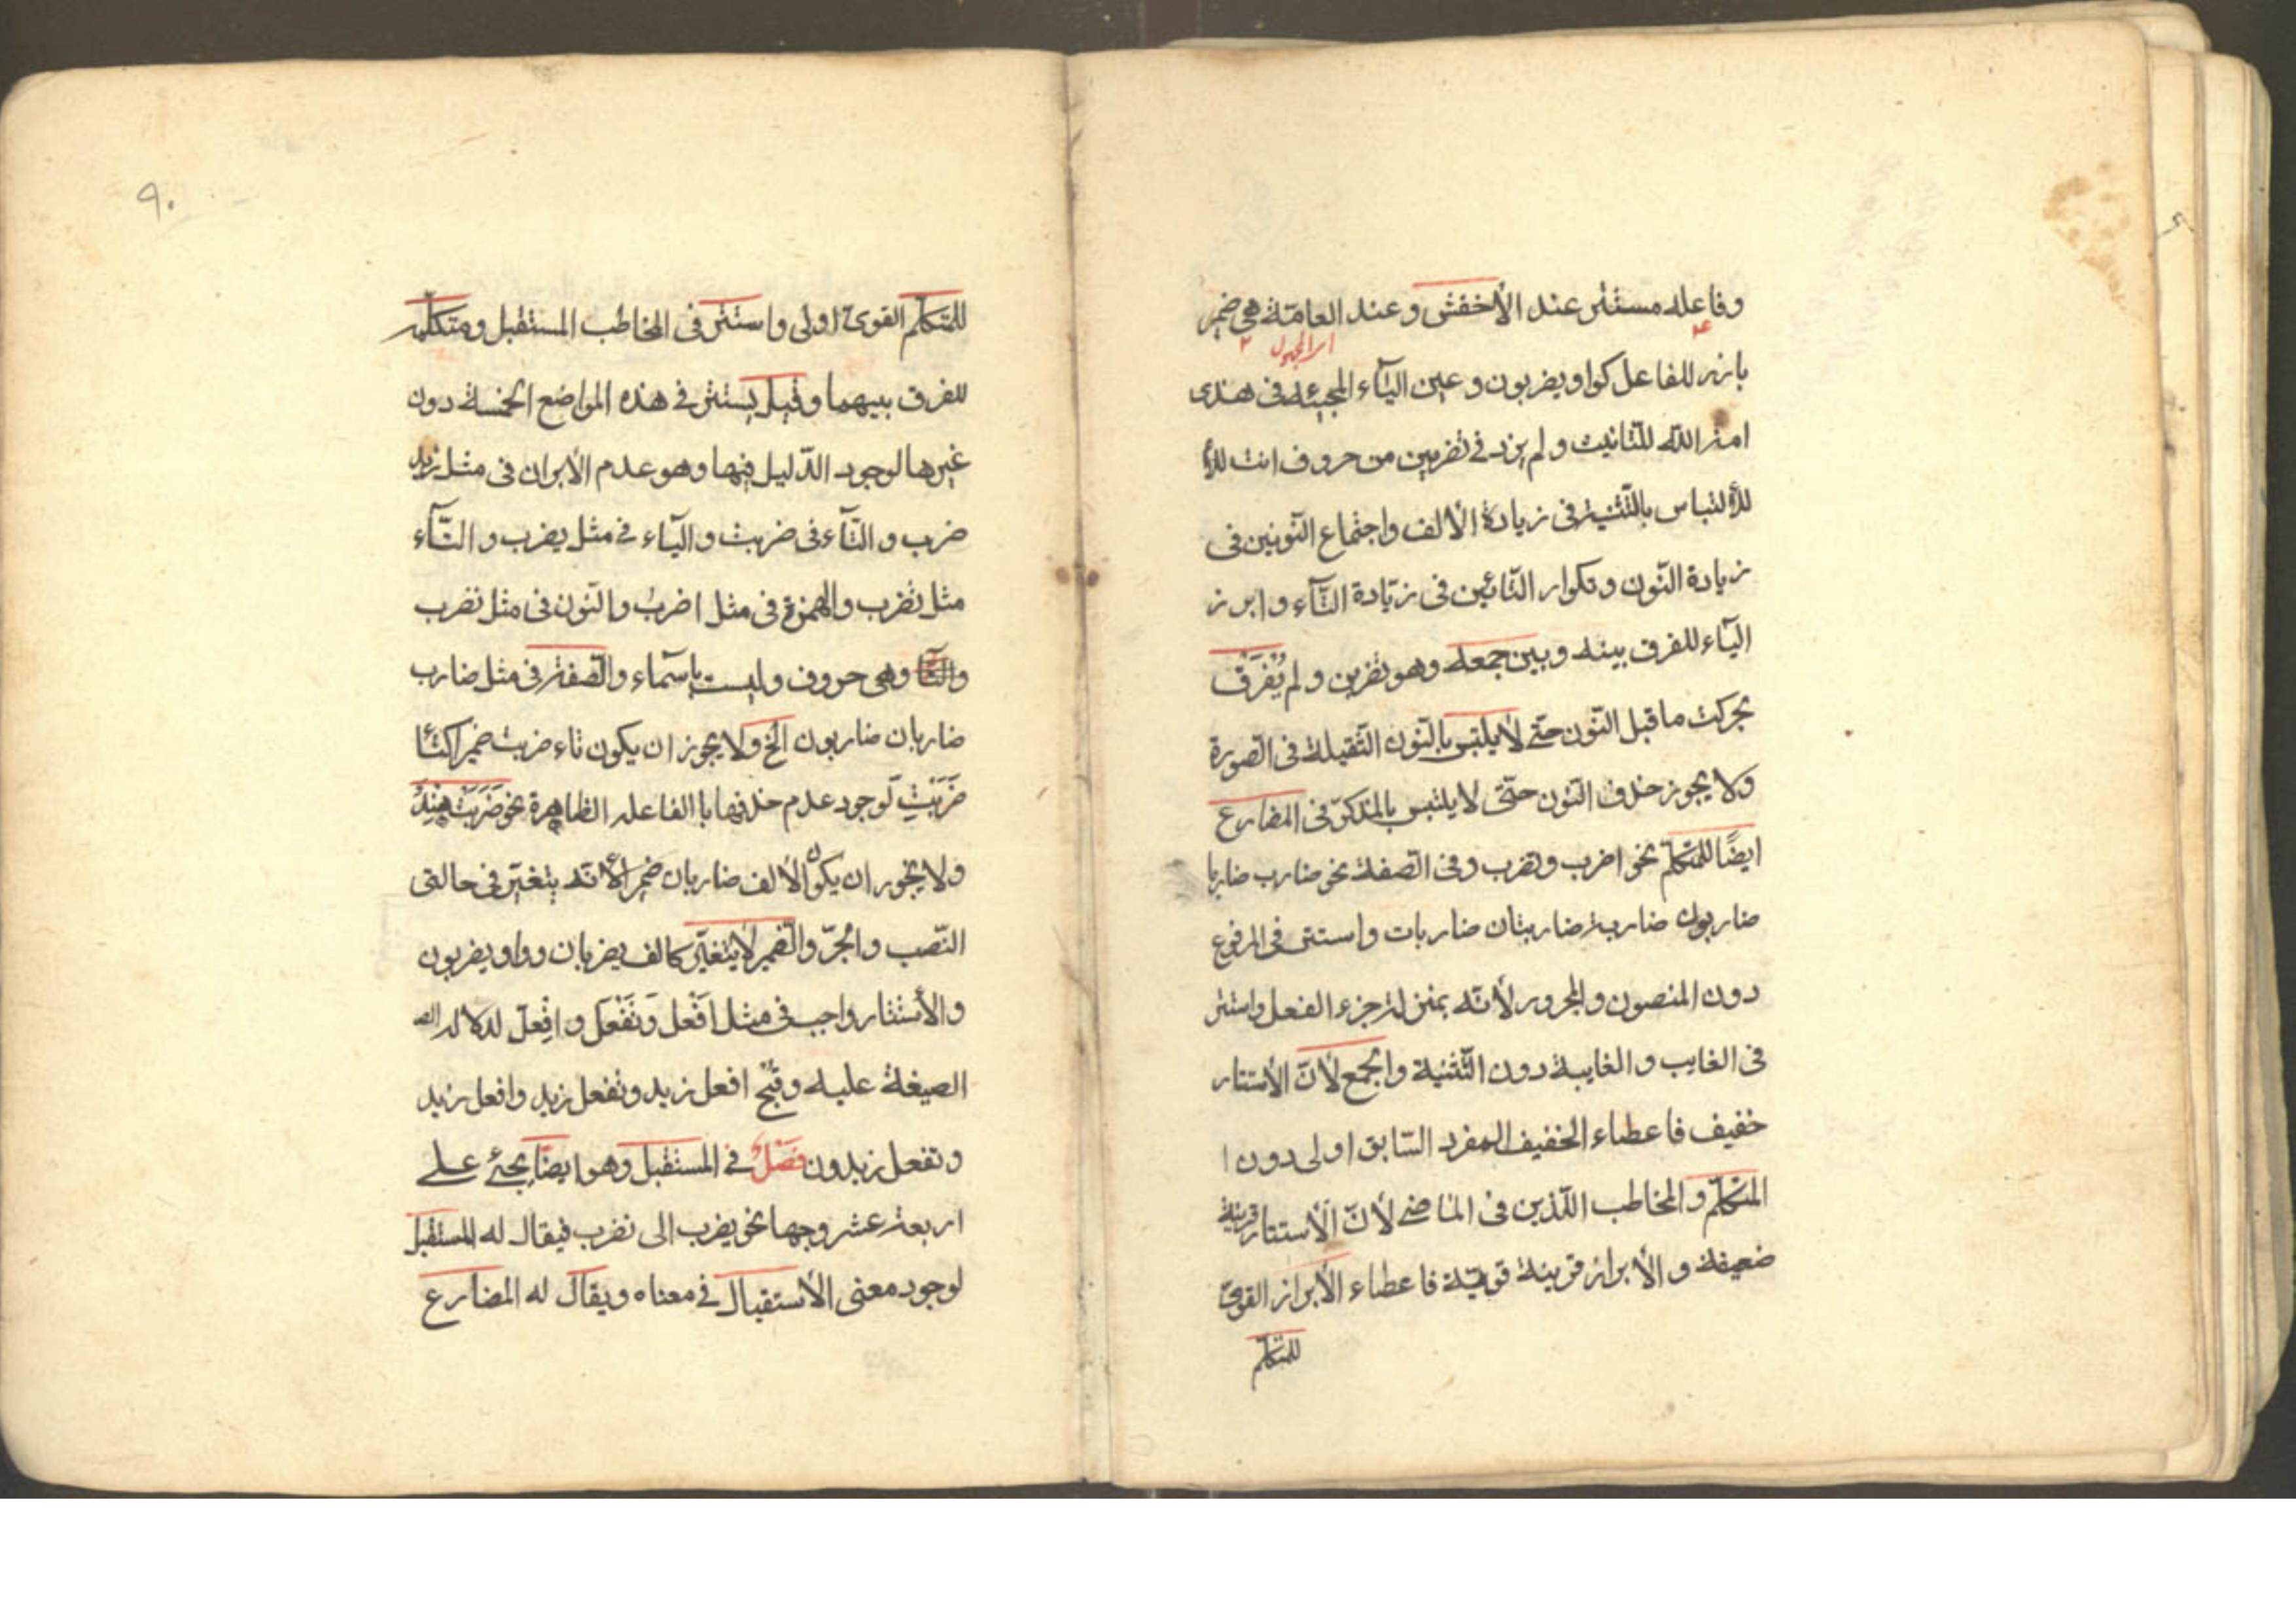 وفاعله مستتر عند الأخفش وعند العامّة هي ضمير
بارز للفاعل كواو يضربون وعين اليآء المجيئه في هذى
امة الله للتّانيث ولم يزد في تضربين من حروف انت للأ
للألتباس بالتّثنية في زيادة الألف واجتماع النّونين في
زيادة النّون وتكرار التّائين في زيادة التّآء وابرز
اليآء للفرق بينه وبين جمعه وهو تضربن ولم يُفْرَقْ
بحركت ما قبل النّون حتّى لا يلتبس بالنّون الثّقيلة في الصّورة
ولا يجوز حذف النّون حتّى لا يلتبس بالمذكّر في المضارع
ايضًا للمتكلّم نحو اضرب ونضرب وفي الصّفة نحو ضارب ضاربا
ضاربون ضاربة ضاربتان ضاربات واستتر في المرفوع
دون المنصون والمجرور لأنّه بمنزلة جزء الفعل واستتر
في الغايب والغايبة دون التّثنية والجمع لأنّ الأستتار
خفيف فاعطاء الخفيف المفرد السّابق اولى دون ا
المتكلّم والمخاطب اللّذين في الماضي لأنّ الأستتار قرينة
ضعيفة والأبراز قرينة قويّة فاعطاء الأبراز القويّ
للمتكلّم
٩٠
للمتكلّم القوىّ اولى واستتر في المخاطب المستقبل ومتكلّمه
للفرق بينهما وقيل يستتر في هذه المواضع الخمسة دون
غيرها لوجود الدّليل فيها وهو عدم الأبران في مثل زيد
ضرب والتّآء في ضربت واليآء في مثل يضرب والتّآء
مثل تضرب والهمزة في مثل اضربُ والنّون في مثل نضرب
وهي حروف وليست باسمآء والصّفة في مثل ضارب
ضاربان ضاربون الخ ولا يجوز ان يكون تاء ضربت ضميرا كتا
ضَرَبْتِ لوجود عدم حذفها با الفاعله الظاهرة نحو ضَرَبَتْ هِنْدُ
ولا يجور ان يكون الألف ضاربان ضميرا لأنّه يتغيّر في حالتى
النّصب والجرّ والضمير لا يتغيّر كالف يضربان وواو يضربون
والأستتار واجب في مثل اَفْعَل وَتَفْعَل وافعل لدلالة
الصيغة عليه وقبح افعل زيد وتفعل زيد وافعل زيد
وتفعل زيدون فَصْلٌ في المستقبل وهو ايضًا يجئ على
اربعة عشر وجها نحو يضرب الى نضرب فيقال له المستقبل
لوجود معنى الأستقبال في معناه ويقال له المضارع